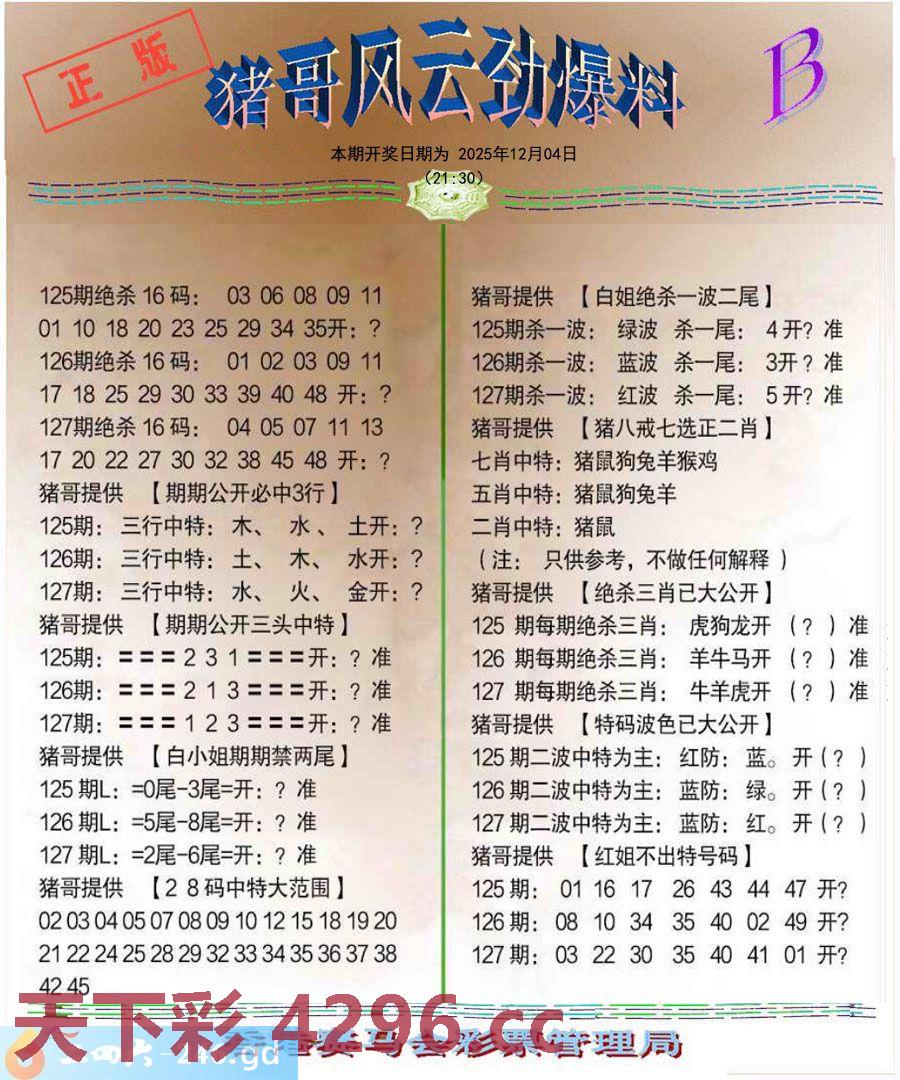 正版
猪哥风云劲爆料
B
本期开奖日期为 2025年12月04日
(21:30)
125期绝杀16码: 03 06 08 09 11
01 10 18 20 23 25 29 34 35开:?
126期绝杀16码: 01 02 03 09 11
17 18 25 29 30 33 39 40 48 开:?
127期绝杀16码: 04 05 07 11 13
17 20 22 27 30 32 38 45 48 开:?
猪哥提供 【期期公开必中3行】
125期: 三行中特: 木、 水、 土开:?
126期: 三行中特: 土、 木、 水开:?
127期: 三行中特: 水、 火、 金开:?
猪哥提供 【期期公开三头中特】
125期: ===2 3 1===开:?准
126期: ===2 1 3===开:?准
127期: ===1 2 3===开:?准
猪哥提供 【白小姐期期禁两尾】
125期L: =0尾-3尾=开:?准
126期L: =5尾-8尾=开:?准
127期L: =2尾-6尾=开:?准
猪哥提供 【28码中特大范围】
02 03 04 05 07 08 09 10 12 15 18 19 20
21 22 24 25 28 29 32 33 34 35 36 37 38
42 45
猪哥提供 【白姐绝杀一波二尾】
125期杀一波: 绿波 杀一尾: 4开?准
126期杀一波: 蓝波 杀一尾: 3开?准
127期杀一波: 红波 杀一尾: 5开?准
猪哥提供 【猪八戒七选正二肖】
七肖中特: 猪鼠狗兔羊猴鸡
五肖中特: 猪鼠狗兔羊
二肖中特: 猪鼠
(注: 只供参考,不做任何解释)
猪哥提供 【绝杀三肖已大公开】
125 期每期绝杀三肖: 虎狗龙开 (?)准
126 期每期绝杀三肖: 羊牛马开 (?)准
127 期每期绝杀三肖: 牛羊虎开 (?)准
猪哥提供 【特码波色已大公开】
125期二波中特为主: 红防: 蓝。开(?)
126期二波中特为主: 蓝防: 绿。开(?)
127期二波中特为主: 蓝防: 红。开(?)
猪哥提供 【红姐不出特号码】
125期: 01 16 17 26 43 44 47 开?
126期: 08 10 34 35 40 02 49 开?
127期: 03 22 30 35 40 41 01 开?
天下彩 4296.cc
马会彩票管理局